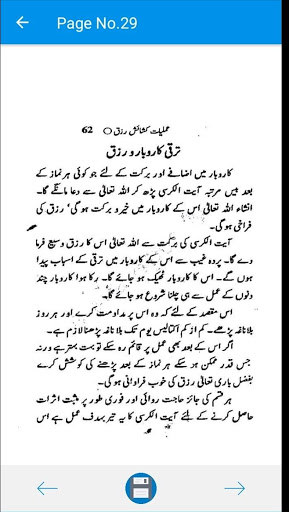 Page No.29
عملیات کشائش رزق ○ 62
ترقی کاروبار و رزق
کاروبار میں اضافے اور برکت کے لئے جو کوئی ہر نماز کے
بعد بیس مرتبہ آیت الکرسی پڑھ کر اللہ تعالیٰ سے دعا مانگے گا۔
انشاء اللہ تعالیٰ اس کے کاروبار میں خیر و برکت ہو گی، رزق کی
فراخی ہو گی۔
آیت الکرسی کی برکت سے اللہ تعالیٰ اس کا رزق وسیع فرما
دے گا۔ پردہ غیب سے اس کے کاروبار میں ترقی کے اسباب پیدا
ہوں گے۔ اس کا کاروبار ٹھیک ہو جائے گا۔ رکا ہوا کاروبار چند
دنوں کے عمل سے ہی چلنا شروع ہو جائے گا۔
اس مقصد کے لئے کہ وہ اس پر مداومت کرے اور ہر روز
بلاناغہ پڑھے۔ کم از کم اکتالیس یوم تک بلاناغہ پڑھنا لازم ہے۔
اگر اس کے بعد بھی عمل پر قائم رہ سکے تو بہت بہتر ہے ورنہ
جس قدر ممکن ہو سکے ہر نماز کے بعد پڑھنے کی کوشش کرے
بفضل باری تعالیٰ رزق کی خوب فراوانی ہو گی۔
ہر قسم کی جائز حاجت روائی اور فوری طور پر مثبت اثرات
حاصل کرنے کے لئے آیت الکرسی کا یہ تیر بہدف عمل ہے اس